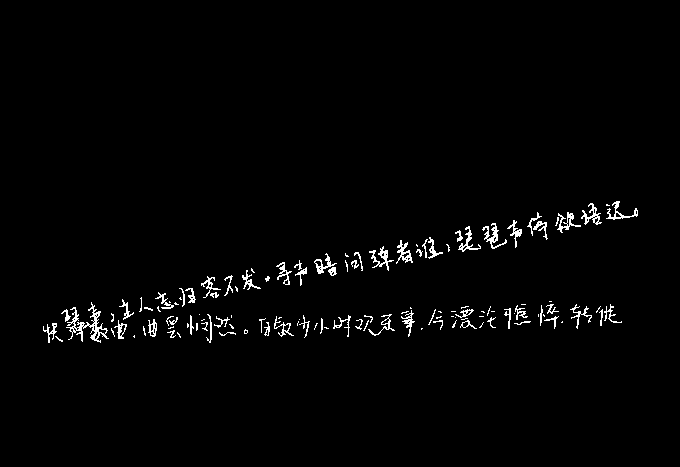 琶声,主人忘归客不发。寻声暗问弹者谁,琵琶声停欲语迟。
快弹数曲,曲罢悯然。自叙少小时欢乐事,今漂沦憔悴,转徙